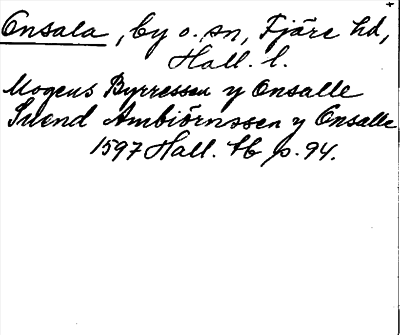 Onsala, by o. sn, Fjäre hd,
Hall. l.
Mogens Byrressen y Onsalle
Suend Ambiörnssen y Onsalle
1597 Hall. tb p. 94.